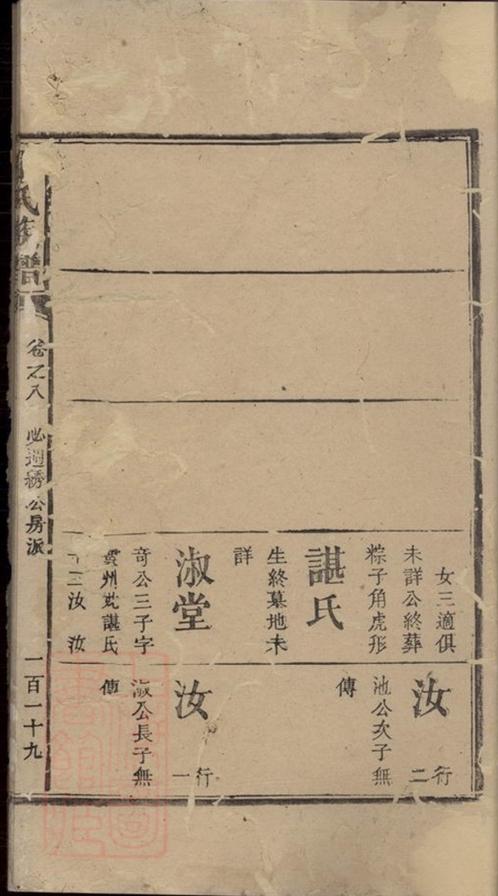 女三適俱
未詳公終葬
粽子角虎形
諶氏
生終墓地未
詳
淑堂
奇公三子字
貴州娶諶氏
子二汝 汝
汝
行二
池公次子無
傳
汝
行一
淑公長子無
傳
氏族譜
卷之八
公房派
一百一十九